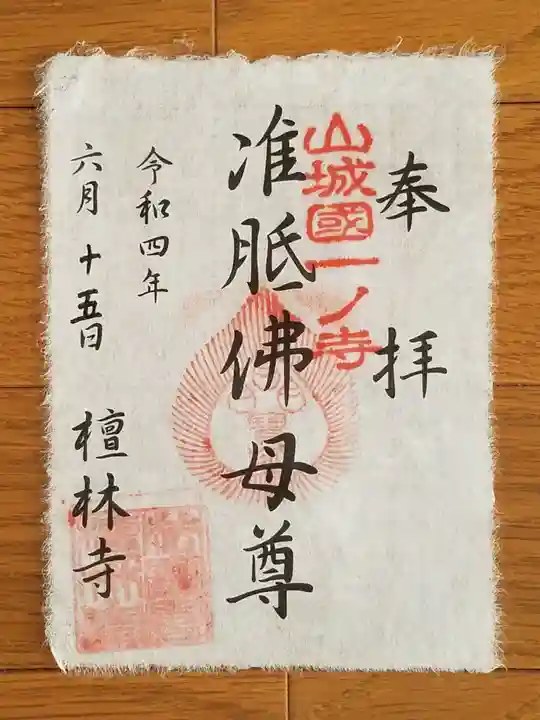 奉拝
山城國一ノ寺
准胝佛母尊
令和四年
六月十五日
檀林寺